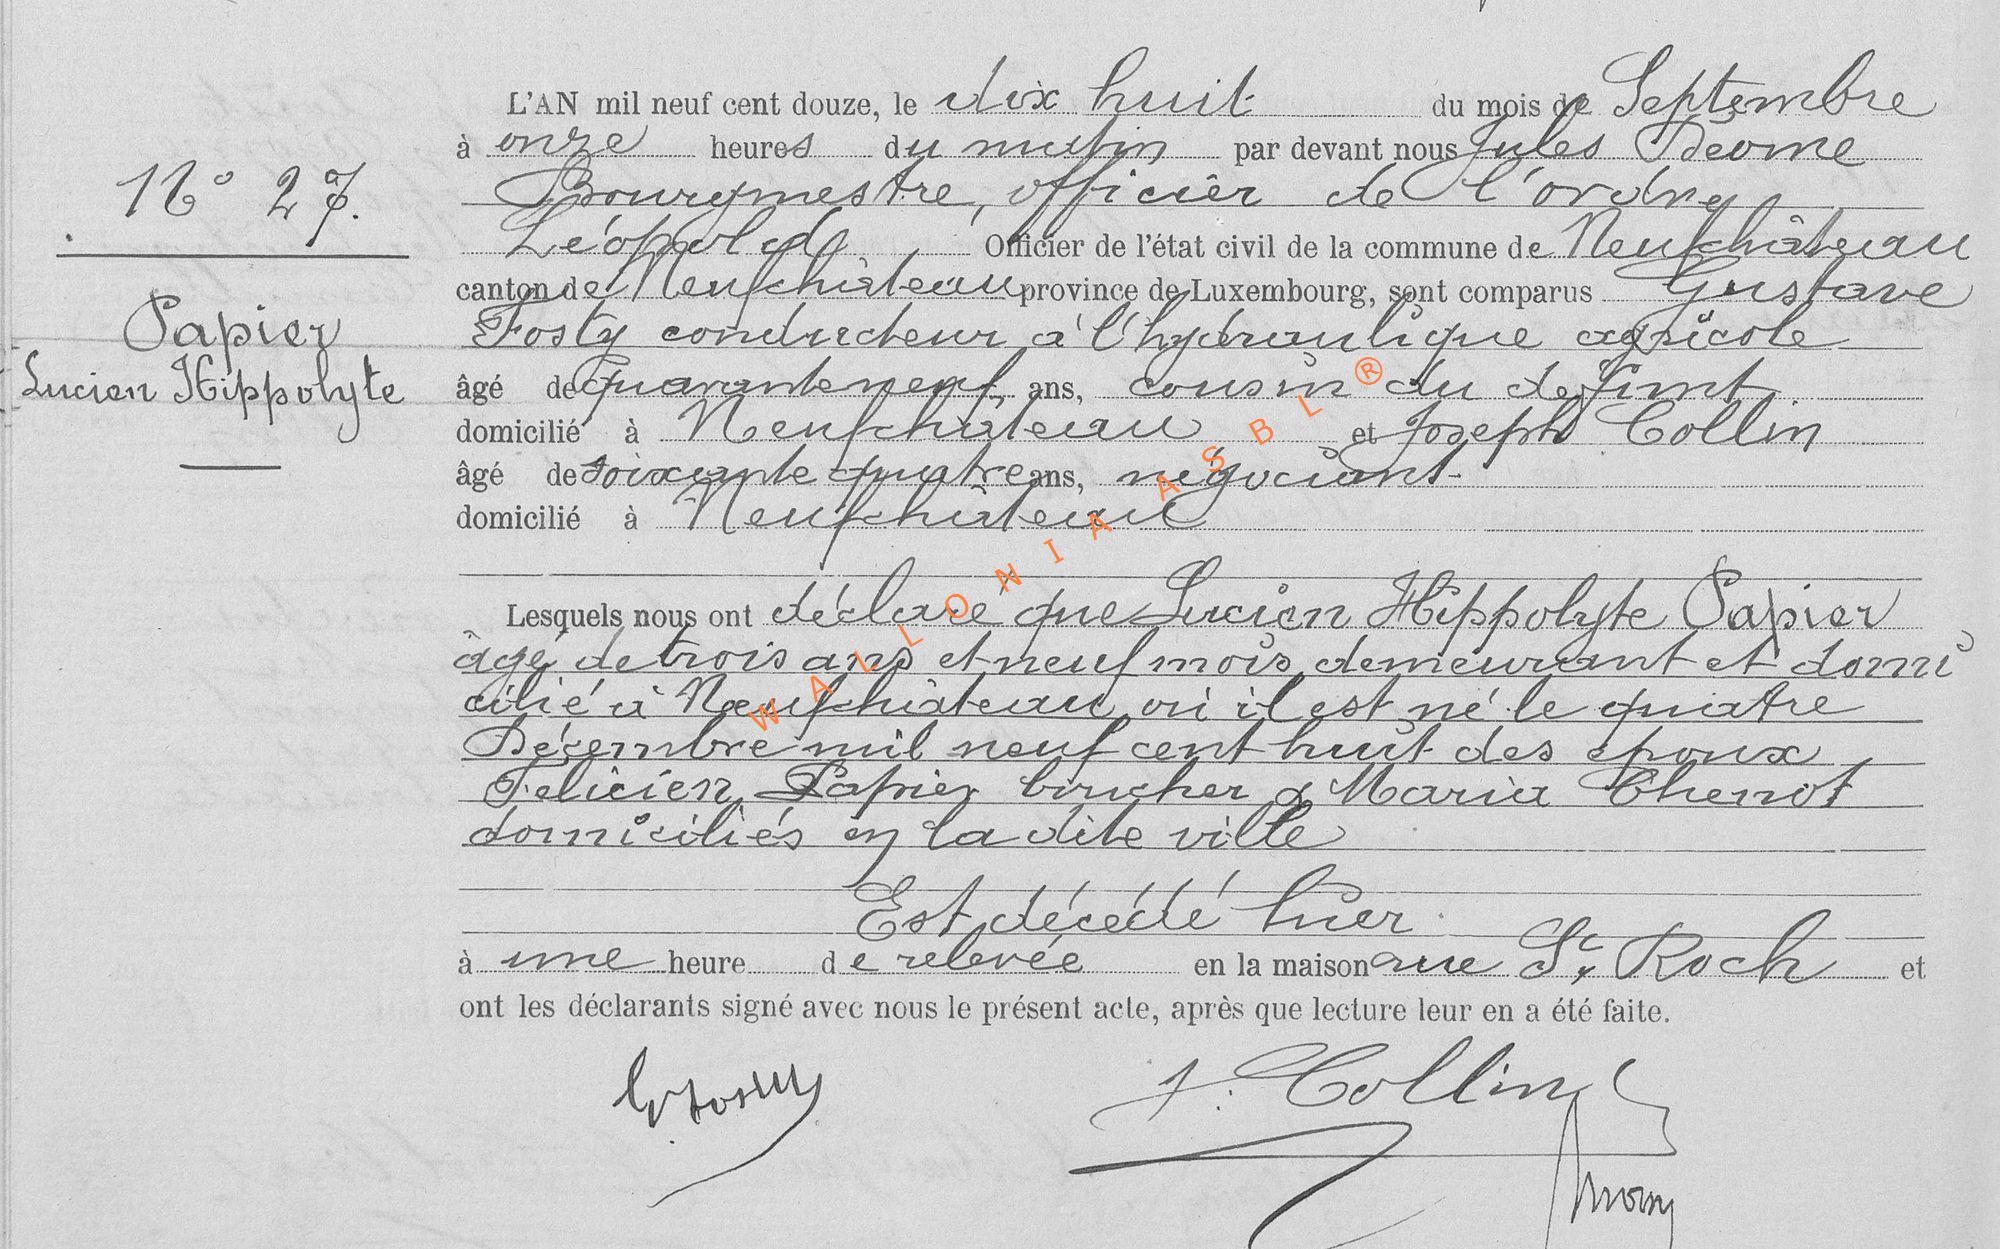 L'AN mil neuf cent douze, le dix huit du mois de Septembre
à onze heures du matin par devant nous Jules
Bourgmestre, officier de l'ordre
Léopold Officier de l'état civil de la commune de Neufchâteau
canton de Neufchâteau province de Luxembourg, sont comparus Gustave
Fosty conducteur à l'hydraulique agricole
âgé de quarante neuf ans, cousin du defunt
domicilié à Neufchâteau et Joseph Collin
âgé de soixante quatre ans, négociant
domicilié à Neufchâteau
Lesquels nous ont déclaré que Lucien Hippolyte Papier
âgé de trois ans et neuf mois, demeurant et domi
cilié à Neufchâteau où il est né le quatre
Décembre mil neuf cent huit des epoux
Felicien Papier boucher & Maria Thenot
domiciliés en la dite ville
Est décédé hier
à une heure de relevée en la maison rue St Roch et
ont les déclarants signé avec nous le présent acte, après que lecture leur en a été faite.
N° 27.
Papier
Lucien Hippolyte
G Fosty
J. Collin
WALLONIA ASBL ®